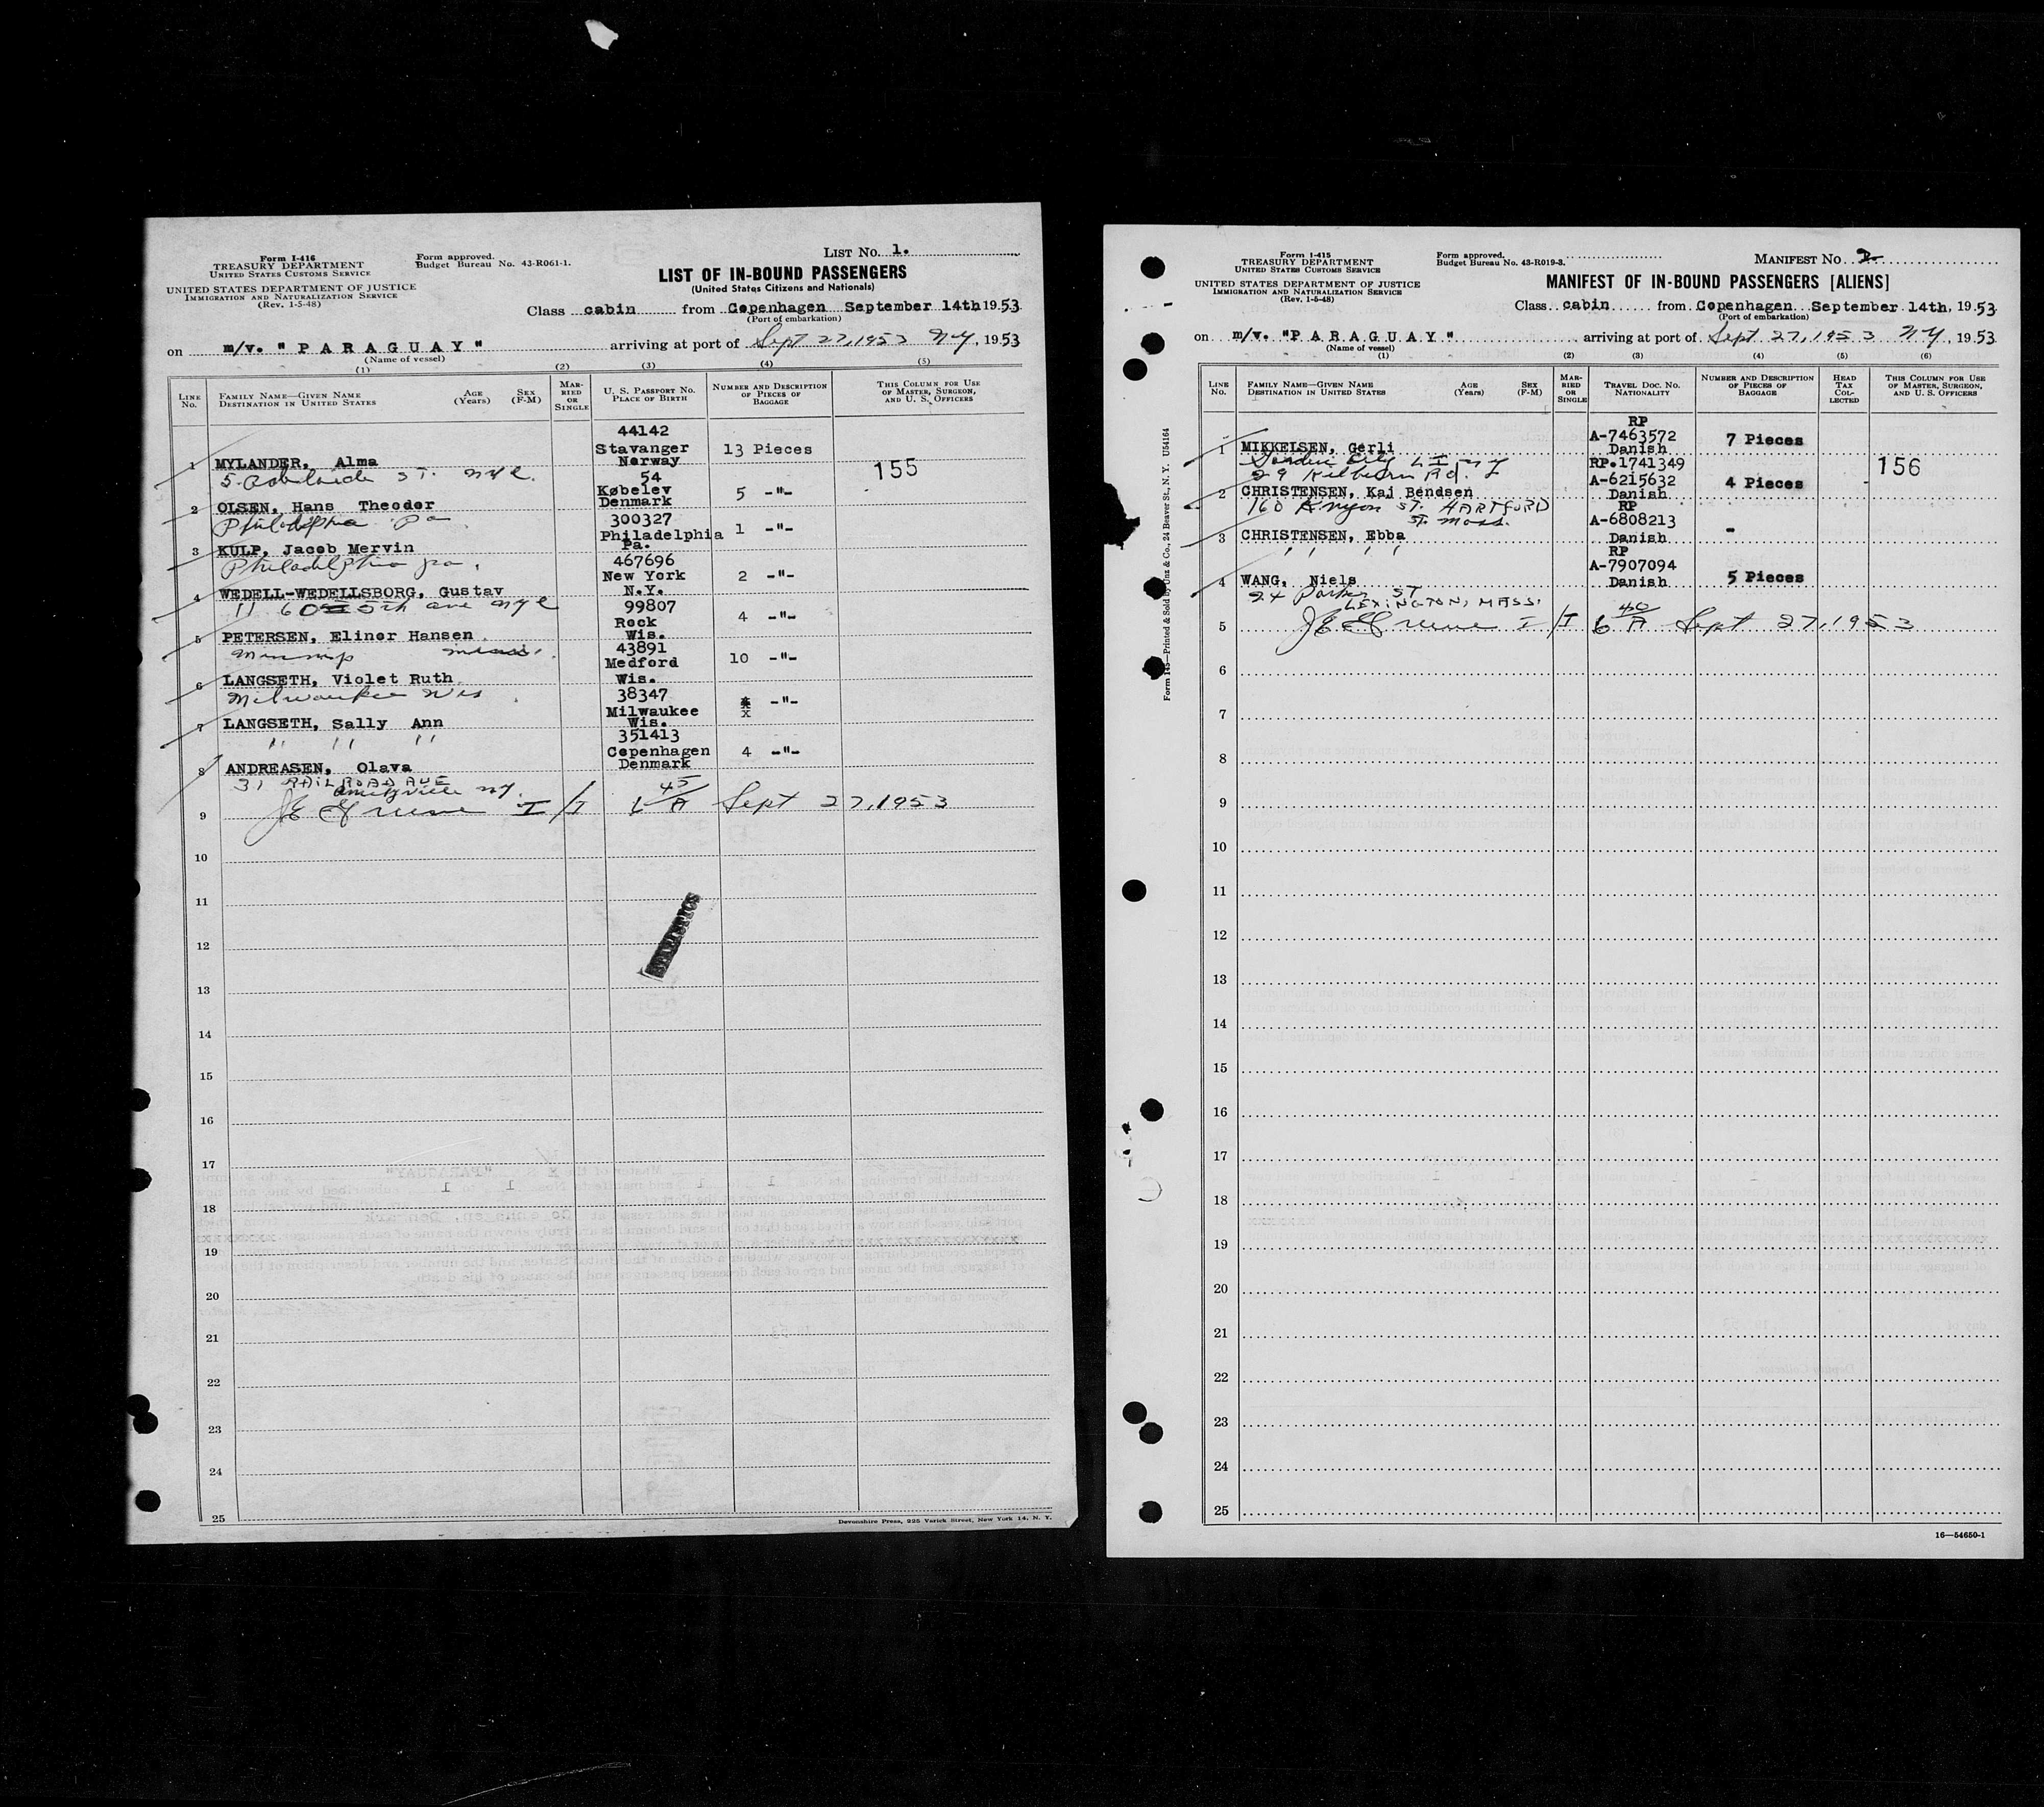 Form I-416
TREASURY DEPARTMENT
UNITED STATES CUSTOMS SERVICE
UNITED STATES DEPARTMENT OF JUSTICE
IMMIGRATION AND NATURALIZATION SERVICE
(Rev. 1-5-48)
Form approved.
Budget Bureau No. 43-R061-1.
LIST NO. 1.
LIST OF IN-BOUND PASSENGERS
(United States Citizens and Nationals)
Class cabin from Copenhagen September 14th 1953
(Port of embarkation)
on m/v. "PARAGUAY" arriving at port of Sept 27, 1953 NY, 1953
(Name of vessel)
(1) (2) (3) (4) (5)
LINE No.
FAMILY NAME—GIVEN NAME
DESTINATION IN UNITED STATES
AGE (Years)
SEX (F-M)
MARRIED OR SINGLE
U. S. PASSPORT NO.
PLACE OF BIRTH
NUMBER AND DESCRIPTION OF PIECES OF BAGGAGE
THIS COLUMN FOR USE OF MASTER, SURGEON, AND U. S. OFFICERS
44142
1 MYLANDER, Alma Stavanger Norway 13 Pieces
5 Adelaide ST. NYC
155
54
2 OLSEN, Hans Theodor Købelev Denmark 5 -"-
Philadelphia Pa
300327
3 KULP, Jacob Mervin Philadelphia Pa. 1 -"-
Philadelphia pa.
467696
4 WEDELL-WEDELLSBORG, Gustav New York N.Y. 2 -"-
5th ave NYC
99807
5 PETERSEN, Elinor Hansen Rock Wis. 4 -"-
43891
6 LANGSETH, Violet Ruth Medford Wis. 10 -"-
Milwaukee Wis
38347
7 LANGSETH, Sally Ann Milwaukee Wis. x -"-
" " "
351413
8 ANDREASEN, Olava Copenhagen Denmark 4 -"-
31 RAILROAD AVE
Amityville NY.
9 JE Greene I/I 6 45/A Sept 27, 1953
10
11
12
13
14
15
16
17
18
19
20
21
22
23
24
25
Devonshire Press, 225 Varick Street, New York 14, N. Y.
Form I-415
TREASURY DEPARTMENT
UNITED STATES CUSTOMS SERVICE
UNITED STATES DEPARTMENT OF JUSTICE
IMMIGRATION AND NATURALIZATION SERVICE
(Rev. 1-5-48)
Form approved.
Budget Bureau No. 43-R019-3.
MANIFEST NO. 2
MANIFEST OF IN-BOUND PASSENGERS [ALIENS]
Class cabin from Copenhagen September 14th, 1953
(Port of embarkation)
on m/v. "PARAGUAY" arriving at port of Sept 27, 1953 NY, 1953
(Name of vessel)
(1) (2) (3) (4) (5) (6)
LINE No.
FAMILY NAME—GIVEN NAME
DESTINATION IN UNITED STATES
AGE (Years)
SEX (F-M)
MARRIED OR SINGLE
TRAVEL DOC. NO.
NATIONALITY
NUMBER AND DESCRIPTION OF PIECES OF BAGGAGE
HEAD TAX COLLECTED
THIS COLUMN FOR USE OF MASTER, SURGEON, AND U. S. OFFICERS
RP
A-7463572
1 MIKKELSEN, Gerli Danish 7 Pieces
Garden City L I NY
29 Kilburn Rd.
156
RP.1741349
A-6215632
2 CHRISTENSEN, Kaj Bendsen Danish 4 Pieces
160 Kenyon ST. HARTFORD
RP
A-6808213
3 CHRISTENSEN, Ebba Danish -
" " " "
RP
A-7907094
4 WANG, Niels Danish 5 Pieces
24 Parker ST
LEXINGTON, MASS.
5 JE Greene I/I 6 40/A Sept 27, 1953
6
7
8
9
10
11
12
13
14
15
16
17
18
19
20
21
22
23
24
25
16—54650-1
Form 145—Printed & Sold by Unz & Co., 24 Beaver St., N. Y. U54164